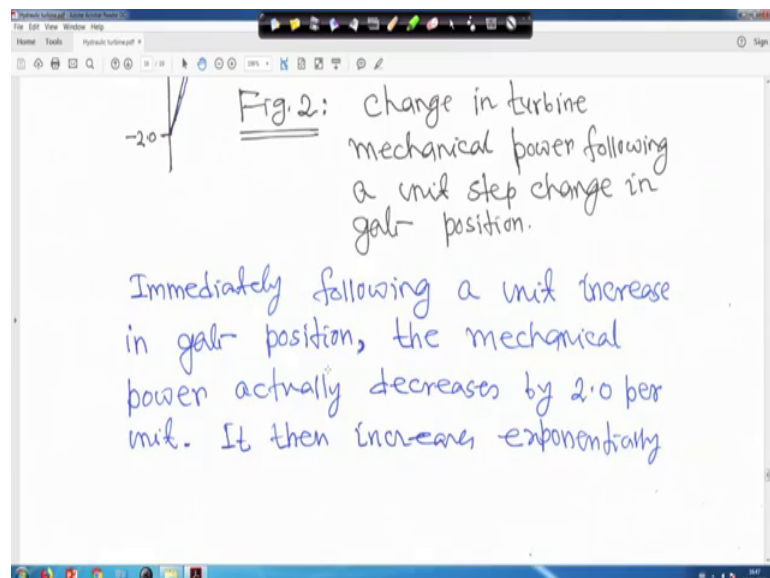 Hydraulic turbine.pdf - Adobe Acrobat Reader DC
File Edit View Window Help
Home Tools Hydraulic turbine.pdf × Sign
-2.0
Fig. 2: Change in turbine
mechanical power following
a unit step change in
gate position.
Immediately following a unit increase
in gate position, the mechanical
power actually decreases by 2.0 per
unit. It then increases exponentially